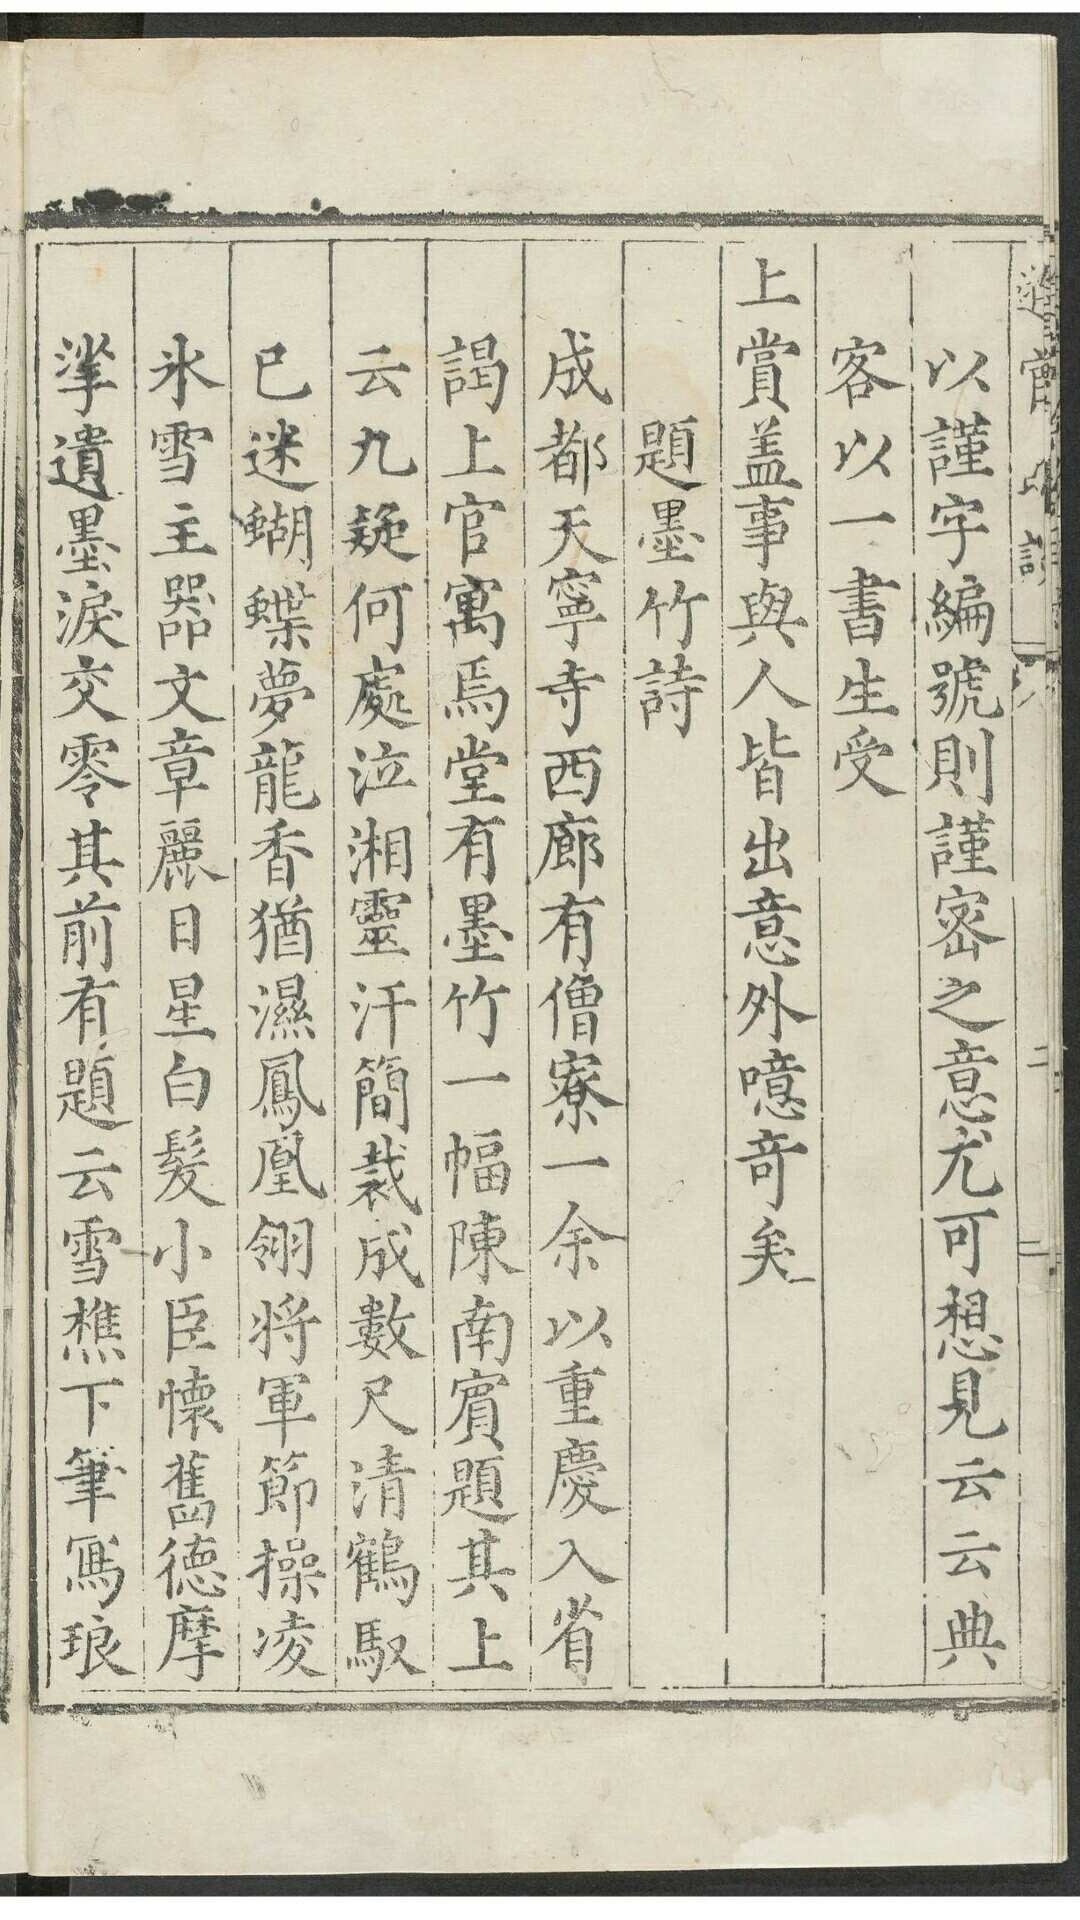 以謹字編號則謹密之意尤可想見云云典
客以一書生受
上賞盖事與人皆出意外噫奇矣
題墨竹詩
成都天寧寺西廊有僧寮一余以重慶入省
謁上官寓焉堂有墨竹一幅陳南賓題其上
云九疑何處泣湘靈汗簡裁成數尺清鶴馭
已迷蝴蝶夢龍香猶濕鳳凰翎將軍節操凌
氷雪主器文章麗日星白髮小臣懷舊德摩
挲遺墨淚交零其前有題云雪樵下筆寫琅